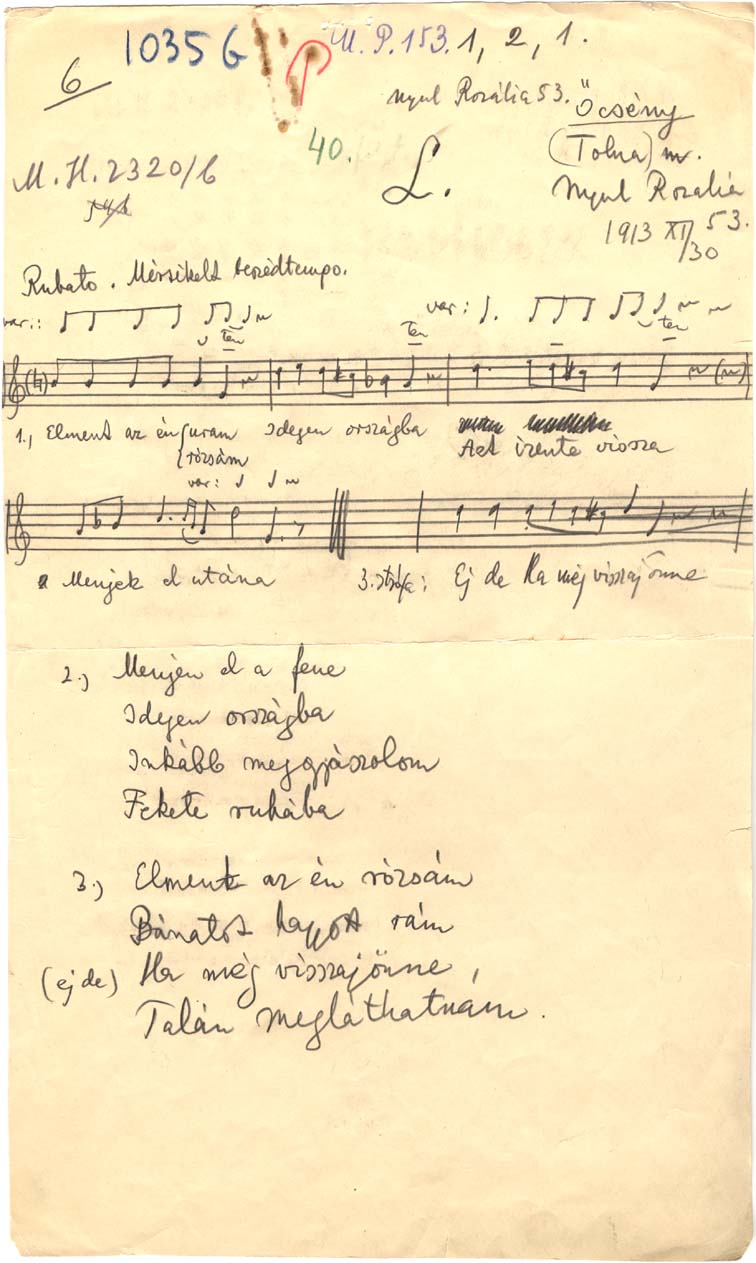 1035 G
M. P. 153. 1, 2, 1.
6
P
Nyul Rozália 53.
Őcsény
(Tolna) m.
Nyul Rozália
53.
1913 XI/30
40.
L.
M. H. 2320/6
Rubato. Mérsékelt beszédtempo.
var.:
ten
ten
var:
ten
1., Elment az én uram Idegen országba
rózsám
Azt izente vissza
var:
Menjek el utána
3. strófa: Ej de Ha még visszajönne
2.) Menjen el a fene
Idegen országba
Inkább meggyászolom
Fekete ruhába
3.) Elment az én rózsám
Bánatot hagyott rám
(ej de) Ha még visszajönne,
Talán megláthatnám.